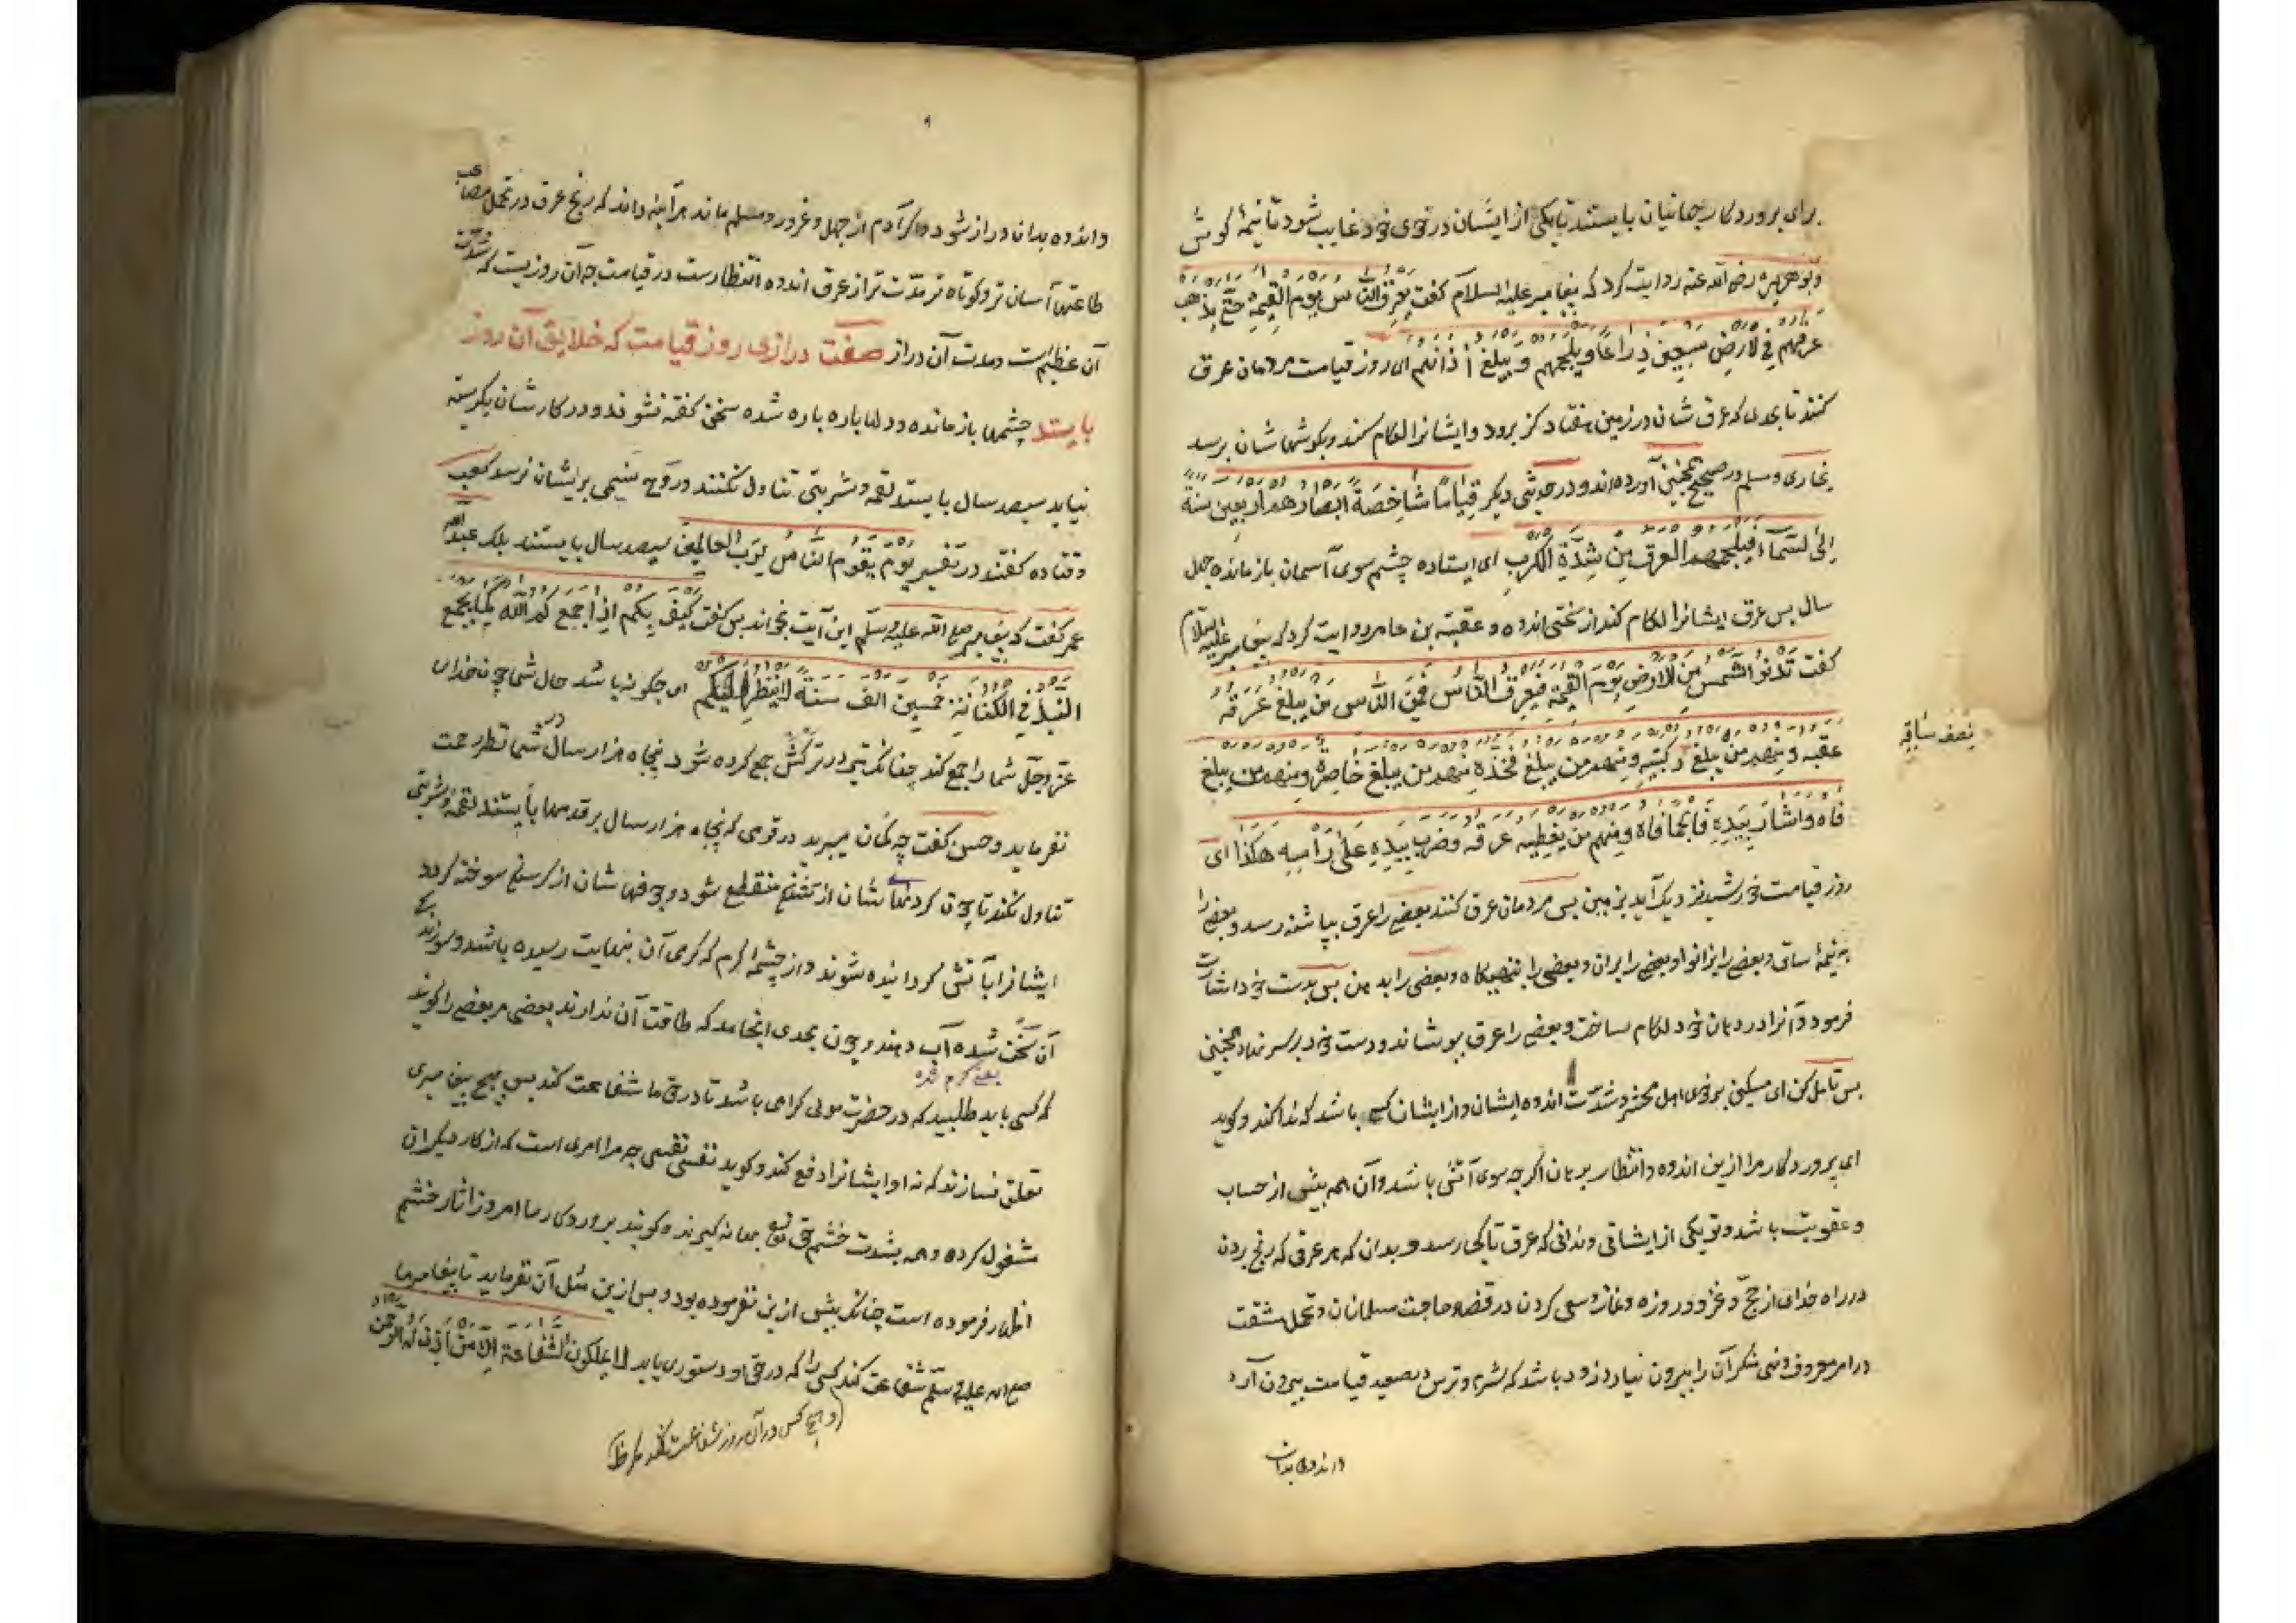 برای پروردکار جهانیان بایستند تا یکی از ایشان در خوی خود غایب شود تا نیمهٔ کوش
وبوهریره رضی الله عنه روایت کرد که پیغامبر علیه السلام کفت یعرق الناس یوم القیمة حتی یذهب
عرقهم فی الارض سبعین ذراعا ویلجمهم ویبلغ اذانهم ای روز قیامت مردمان عرق
کنند تا بحدی که عرق شان در زمین هفتاد کز برود وایشانرا لکام کند وبکوشهاشان برسد
بخاری ومسلم در صحیح همچنین آورده اند ودر حدیثی دیکر قیاما شاخصة ابصارهم اربعین سنة
الی السماء فیلجمهم العرق من شدة الکرب ای ایستاده چشم سوی آسمان باز مانده چهل
سال پس عرق ایشانرا لکام کند از سختی اندوه وعقبة بن عامر روایت کرد که پیغامبر علیه السلام
کفت تدنو الشمس من الارض یوم القیمة فیعرق الناس فمن الناس من یبلغ عرقه
عقبه ومنهم من یبلغ رکبتیه ومنهم من یبلغ فخذه ومنهم من یبلغ خاصره ومنهم من یبلغ
نصف ساقه
فاه واشار بیده فالجما فاه ومنهم من یغطیه عرقه وضرب بیده علی رأسه هکذا ای
روز قیامت خورشید نزدیک آید بزمین پس مردمان عرق کنند بعضی را عرق بپاشنه رسد وبعضی را
به نیمهٔ ساق وبعضی را بزانو وبعضی را بران وبعضی را بتهیکاه وبعضی را بدهن پس بدست خود اشارت
فرمود وآنرا در دهان خود لکام ساخت وبعضی را عرق بپوشاند ودست خود بر سر نهاد همچنین
پس تامل کن ای مسکین در خوی اهل محشر وشدت اندوه ایشان واز ایشان کسی باشد که ندا کند وکوید
ای پروردکار مرا ازین اندوه وانتظار برهان اکرچه سوی آتش باشد وآن همه پیش از حساب
وعقوبت باشد وتو یکی از ایشانی وندانی که عرق تا کجا رسد وبدان که هر عرقی که رنج بردن
در راه خدای از حج وغزو وروزه ونماز وسعی کردن در قضاء حاجت مسلمانان وتحمل مشقت
در امر معروف ونهی منکر آن را بیرون نیارد زود باشد که شرم وترس در صعید قیامت بیرون آرد
واندوه بدان
واندوه بدان دراز شود واکر آدم از جهل وغرور ومسلم ماند هرآینه داند که رنج عرق در تحمل مصائب
طاعتها آسان تر وکوتاه تر مدت تر از عرق اندوه انتظارست در قیامت چه آن روزیست که شدت
آن عظیم است ومدت آن دراز صفت درازی روز قیامت که خلایق آن روز
بایستد چشمها باز مانده ودلها پاره پاره شده سخن کفته نشوند ودر کارشان نکریسته
نیاید سیصد سال بایستند لقمه وشربتی تناول نکنند وروح نسیمی بر ایشان نرسد کعب
وقتاده کفتند در تفسیر یوم یقوم الناس لرب العالمین سیصد سال بایستند بلک عبدالله
عمر کفت که پیغامبر صلی الله علیه وسلم این آیت بخواند پس کفت کیف بکم اذا جمع کم الله کما یجمع
النبل فی الکنانة خمسین الف سنة لا ینظر الیکم ای چکونه باشد حال شما چون خدای
عز وجل شما را جمع کند چنانکه تیر در ترکش جمع کرده شود پنجاه هزار سال در شما نظر رحمت
نفرماید وحسن کفت چه کمان میبرید در قومی که پنجاه هزار سال بر قدمها بایستند لقمه وشربتی
تناول نکنند تا چون کردنهاشان از تشنکی منقطع شود وجوفهاشان از کرسنکی سوخته کردد
ایشانرا بآتش کردانیده شوند واز چشمهٔ کرم که کرمی آن بنهایت رسیده باشد وسوزندکی
آن سخت شده آب دهند وچون بحدی انجامد که طاقت آن ندارند بعضی مر بعضی را کویند
یعنی کرم شده
که کسی باید طلبید که در حضرت مولی کرامی باشد تا در حق ما شفاعت کند پس بهیچ پیغامبری
تعلق نسازند که نه او ایشانرا دفع کند وکوید نفسی نفسی چه مرا امری است که از کار دیکران
مشغول کرده وهمه بشدت خشم حق تع بهانه کیرند وکویند پروردکار ما امروز اثار خشم
اظهار فرموده است چنانکه پیش ازین نفرموده بود وپس ازین مثل آن نفرماید تا پیغامبرما
صلی الله علیه وسلم شفاعت کند کسی را که در حق او دستوری یابد لا یملکون الشفاعة الا من اذن له الرحمن
(وهیچ کس در آن روز شفاعت نکند مکر